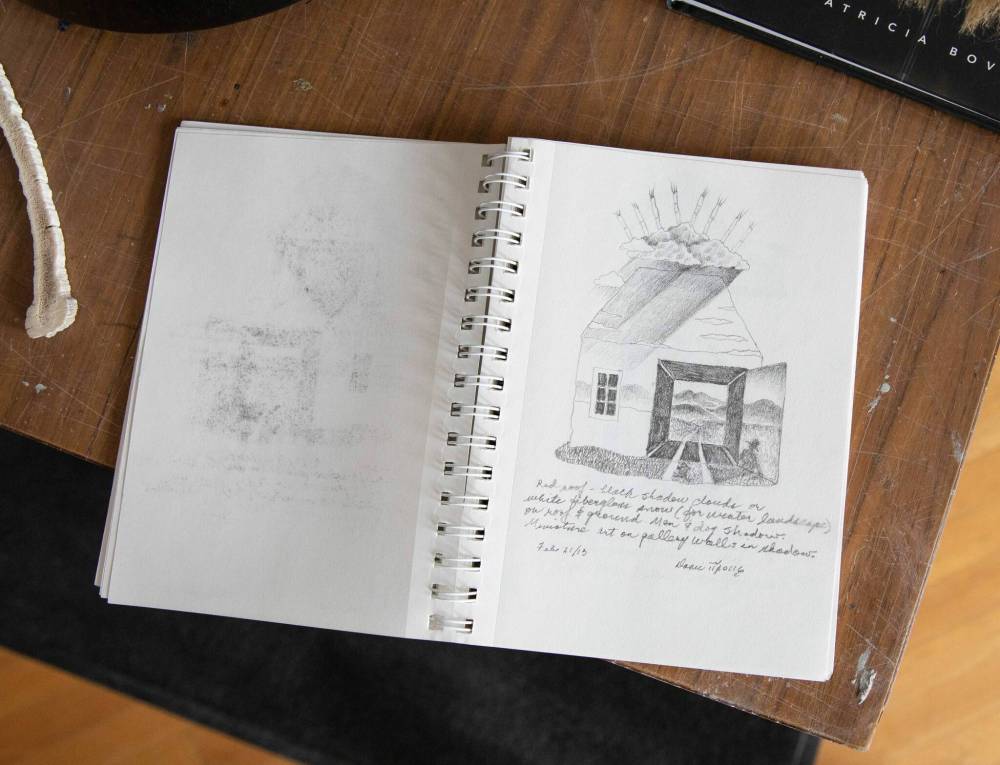 ATRICIA BOV
Red roof - black shadow clouds or
white fiberglass snow (for winter landscape)
on roof & ground Man & dog shadow.
Miniature art on gallery walls in shadow.
Feb 21/13